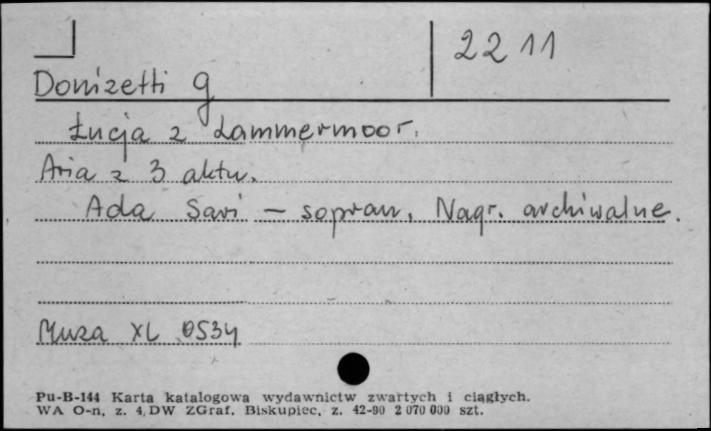 22 11
Donizetti G
Łucja z Lammermoor.
Aria z 3 aktu.
Ada Sari – sopran. Nagr. archiwalne.
Muza XL 0534
Pu-B-144 Karta katalogowa wydawnictw zwartych i ciągłych.
WA O-n, z. 4, DW ZGraf. Biskupiec, z. 42-90 2 070 000 szt.